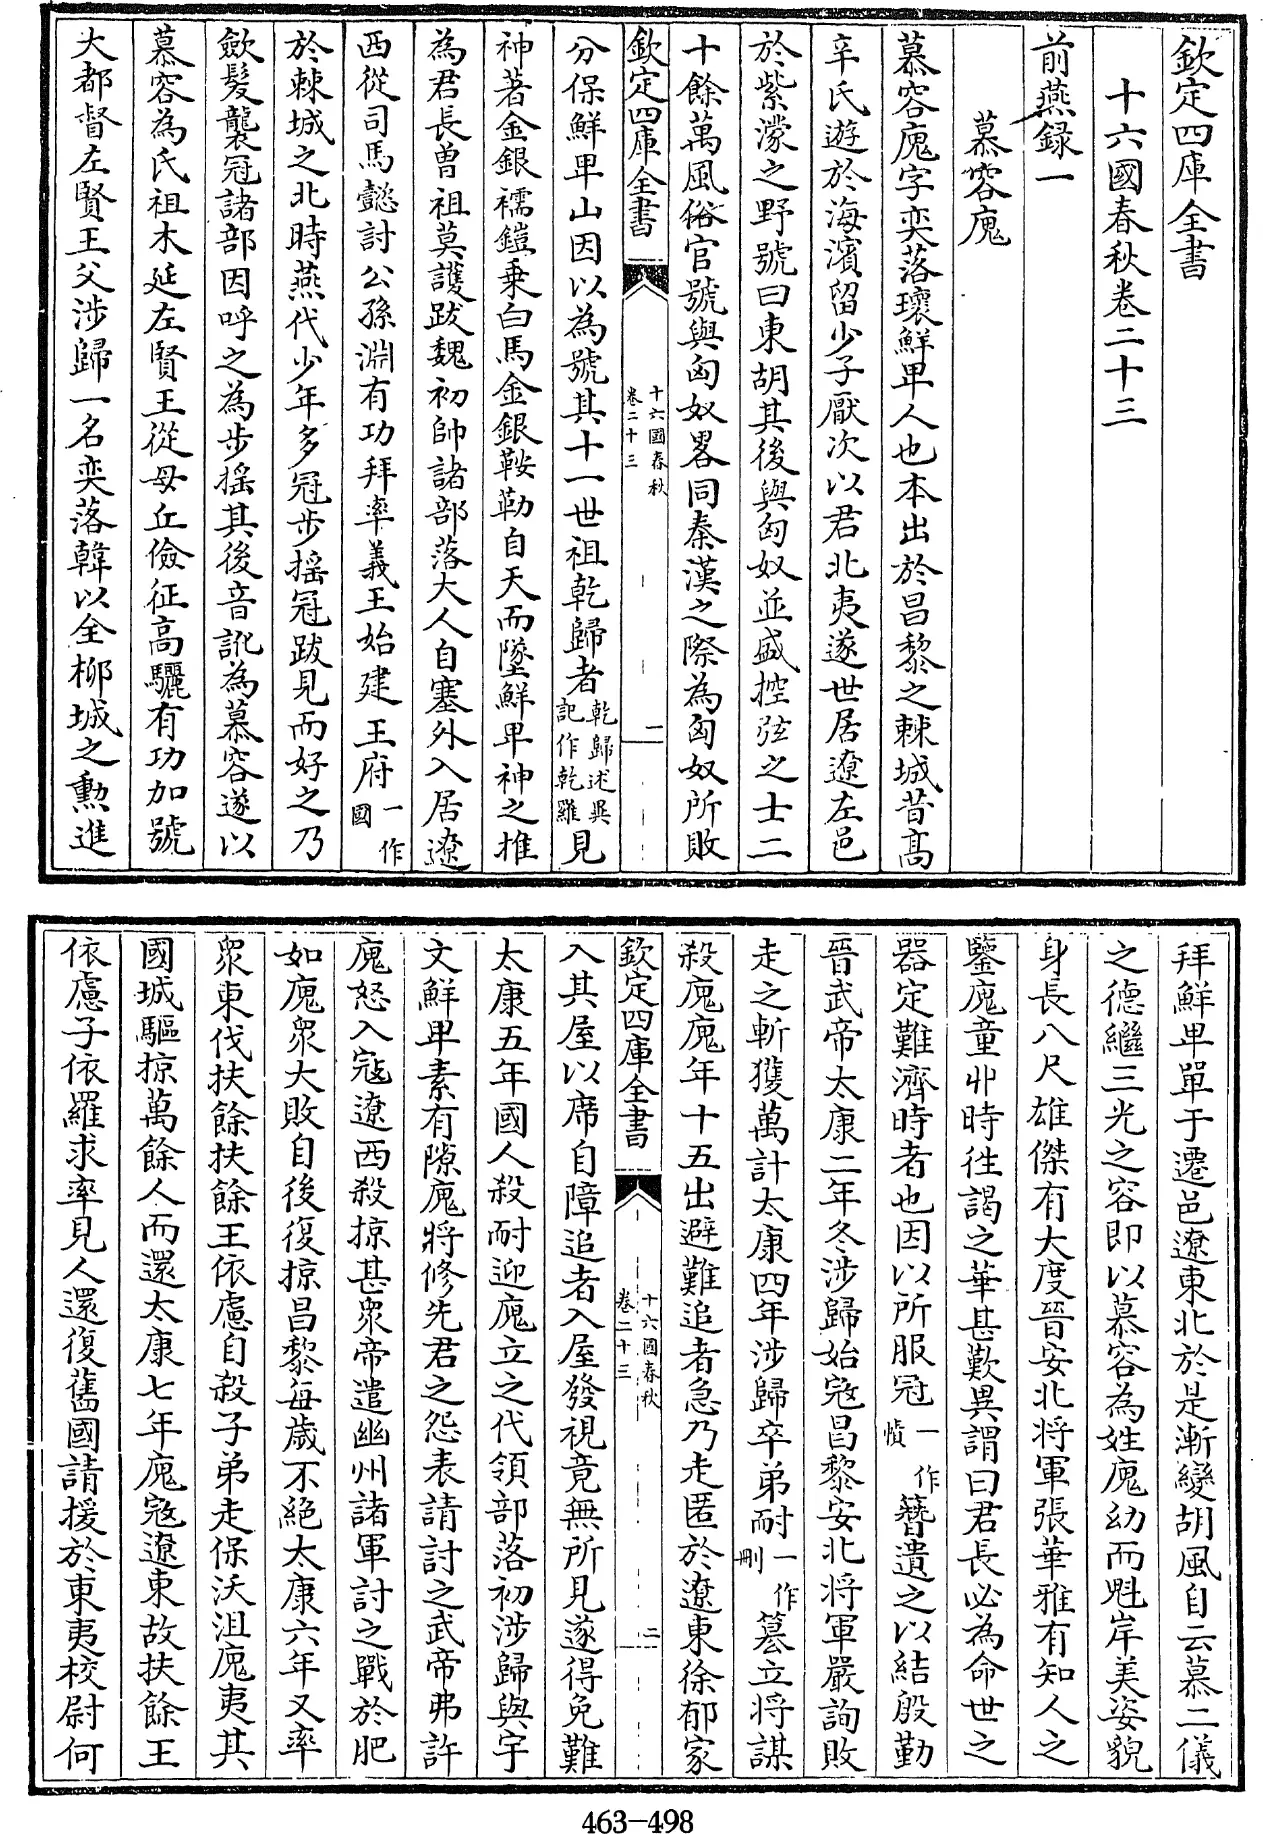 欽定四庫全書
十六國春秋卷二十三
前燕錄一
慕容廆
慕容廆字奕落瓌鮮卑人也本出於昌黎之棘城昔高
辛氏遊於海濱留少子厭次以君北夷遂世居遼左邑
於紫濛之野號曰東胡其後與匈奴並盛控弦之士二
十餘萬風俗官號與匈奴畧同秦漢之際為匈奴所敗
欽定四庫全書
十六國春秋
卷二十三
一
分保鮮卑山因以為號其十一世祖乾歸者乾歸述異記作乾羅見
神著金銀襦鎧乗白馬金銀鞍勒自天而墜鮮卑神之推
為君長曽祖莫䕶跋魏初帥諸部落大人自塞外入居遼
西從司馬懿討公孫淵有功拜率義王始建王府一作國
於棘城之北時燕代少年多冠步揺冠跋見而好之乃
歛髮襲冠諸部因呼之為步揺其後音訛為慕容遂以
慕容為氏祖木延左賢王從母丘儉征高驪有功加號
大都督左賢王父涉歸一名奕落韓以全栁城之勲進
拜鮮卑單于遷邑遼東北於是漸變胡風自云慕二儀
之德繼三光之容即以慕容為姓廆幼而魁岸美姿貌
身長八尺雄傑有大度晉安北將軍張華雅有知人之
鑒廆童丱時徃謁之華甚歎異謂曰君長必為命世之
器定難濟時者也因以所服冠一作幘簪遺之以結殷勤
晉武帝太康二年冬涉歸始宼昌黎安北將軍嚴詢敗
走之斬獲萬計太康四年涉歸卒弟耐一作刪篡立將謀
殺廆廆年十五出避難追者急乃走匿於遼東徐郁家
欽定四庫全書
十六國春秋
卷二十三
二
入其屋以席自障追者入屋發視竟無所見遂得免難
太康五年國人殺耐迎廆立之代領部落初涉歸與宇
文鮮卑素有隙廆將修先君之怨表請討之武帝弗許
廆怒入寇遼西殺掠甚衆帝遣幽州諸軍討之戰於肥
如廆衆大敗自後復掠昌黎每歲不絕太康六年又率
衆東伐扶餘扶餘王依慮自殺子弟走保沃沮廆夷其
國城驅掠萬餘人而還太康七年廆寇遼東故扶餘王
依慮子依羅求率見人還復舊國請援於東夷校尉何
463-498